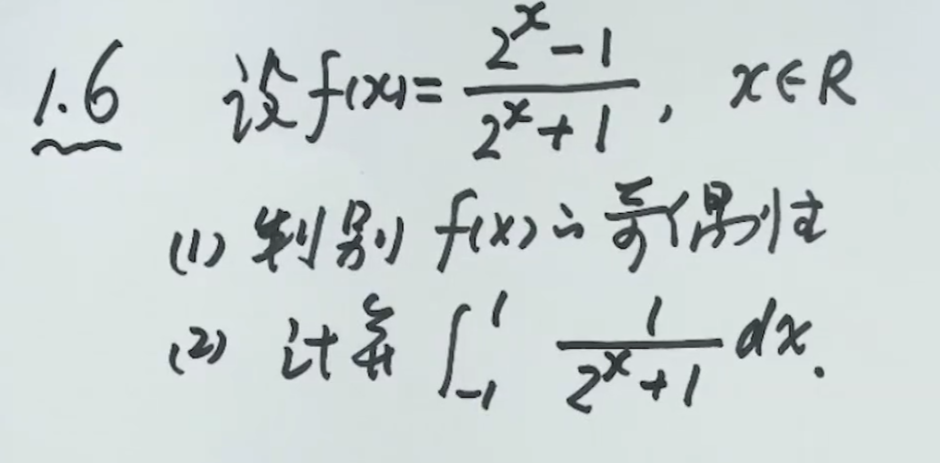 1.6 设f(x)=\frac{2^x-1}{2^x+1}, x∈R
(1) 判别 f(x)的奇偶性
(2) 计算 \int_{-1}^{1} \frac{1}{2^x+1}dx.